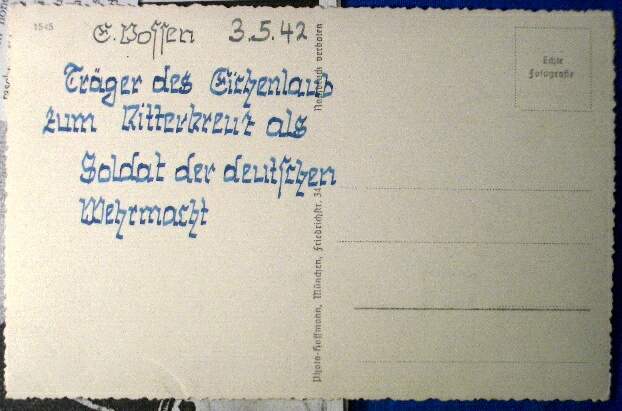 1545
E. Vossen 3.5.42
Träger des Eichenlaub
zum Ritterkreuz als
Soldat der deutschen
Wehrmacht
Photo-Hoffmann, München, Friedrichstr. 34 Nachdruck verboten
Echte
Fotografie